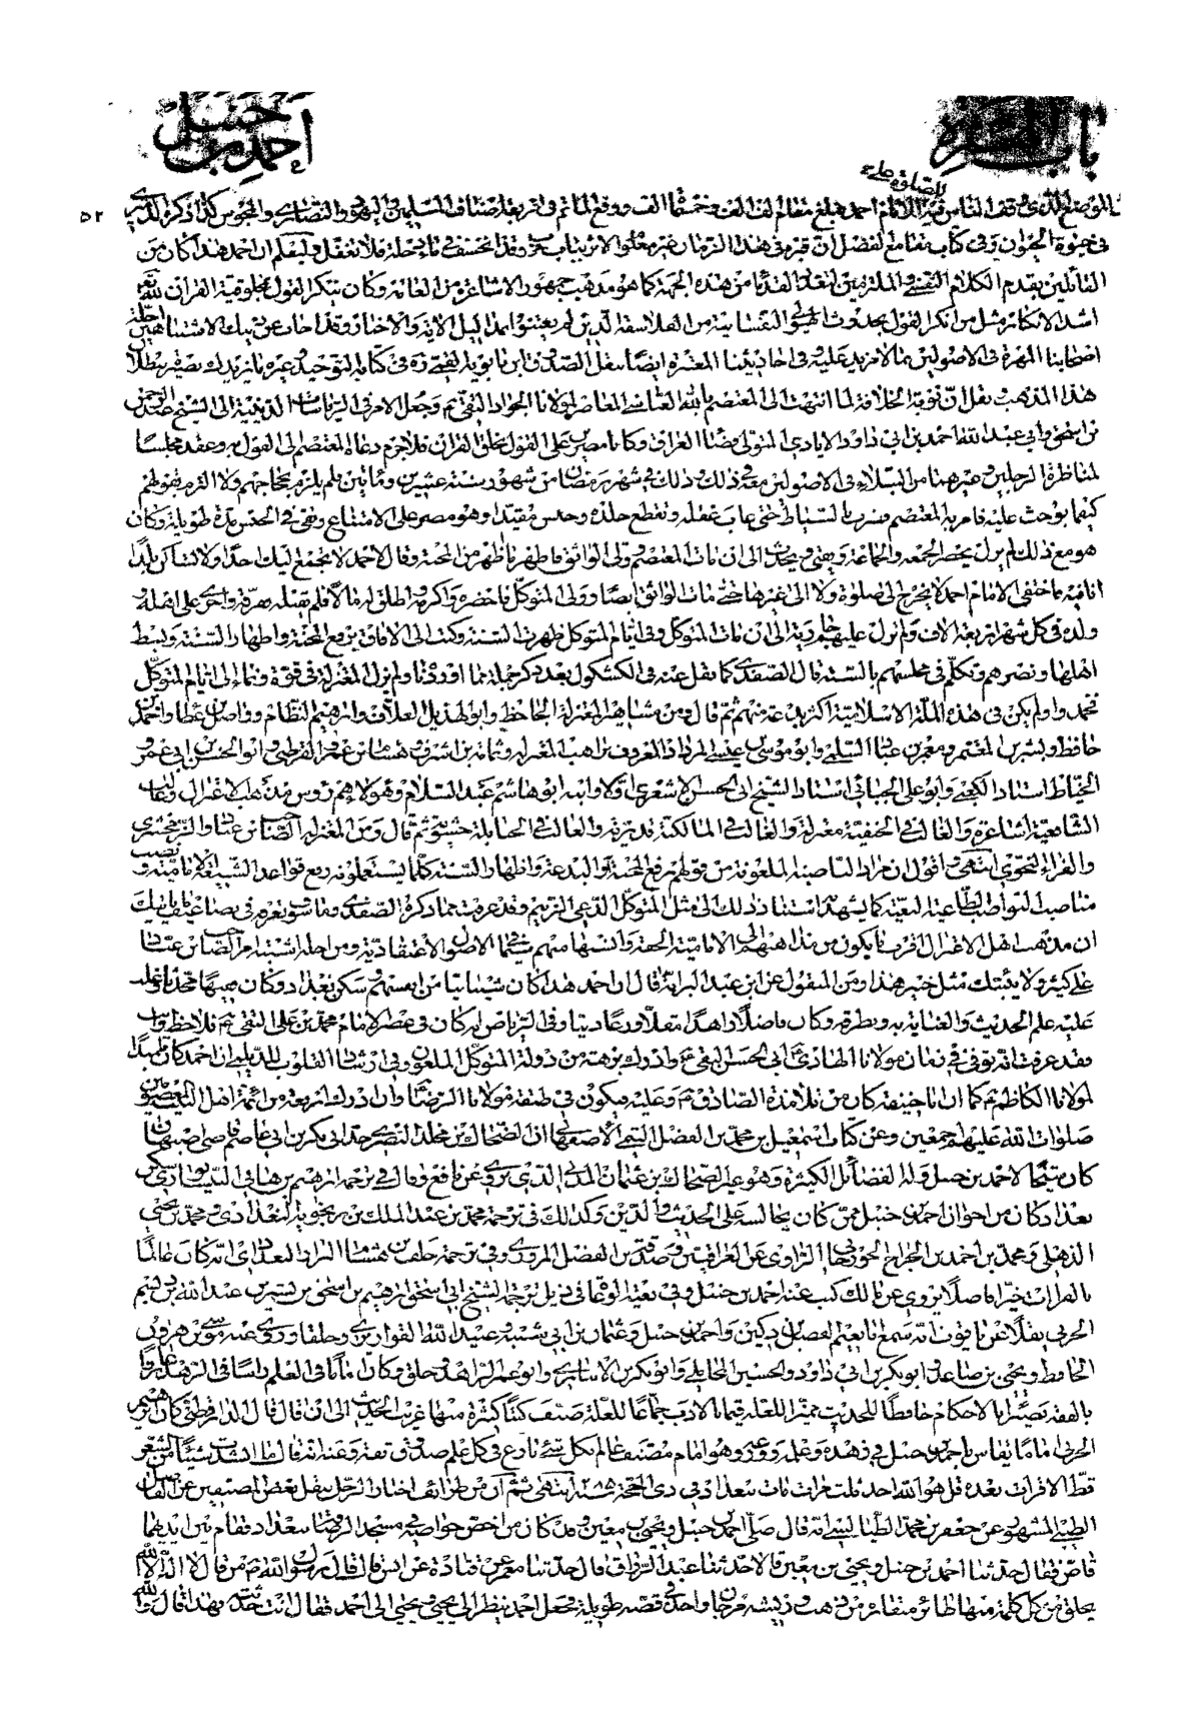 باب
احمد بن حنبل
٥٢
للصلوة عليه
الموضع الذى وقف الناس فيه للامام احمد فبلغ مقام الف الف وخمسمائة الف ووقع المأتم فى اربعة اصناف المسلمين واليهود والنصارى والمجوس كذا ذكره الدميرى
فى حيوة الحيوان وفى كتاب مقامع الفضل ان قبره فى هذا الزمان غير معلوم وقد انخسف فى ماء دجلة فلا تغفل وليعلم ان احمد هذا كان من
القائلين بقدم الكلام النفسى والملتزمين لتعدد القدماء من هذه الجهة كما هو مذهب جمهور الاشاعرة من العامة وكان ينكر القول بمخلوقية القران لله تعالى
اشد الانكار مثل من انكر القول بحدوث الهيولى النفسانية من الفلاسفة الذين لم يعتنوا بالاية والاخبار
اصحابنا المهرة فى الاصولين بما لا مزيد عليه وفى احاديثنا المعتبرة ايضا نقل الصدوق ابن بابويه القمى ره فى كتابه التوحيد وغيره ما يزيدك بصيرة ببطلان
هذا المذهب نقل ان نوبة الخلافة لما انتهت الى المعتصم بالله العباسى المعاصر لمولانا الجواد التقى ع وجعل الامر فى الرياسات الدينية الى الشيخ عبد الرحمن
بن اسحق وابى عبد الله احمد بن ابى داود الايادى المتولى قضاء العراق وكانا مصرين على القول بخلق القران فلا جرم دعاه المعتصم الى القول به وعقد مجلسا
لمناظرة الرجلين وغيرهما من الاصولين معه فى ذلك وذلك فى شهر رمضان من شهور سنة عشرين ومأتين فلم يلزم بحجاجهم ولا التزم بقولهم
كيفما بوحث عليه فامر به المعتصم فضرب بالسياط حتى غاب عقله وتقطع جلده وحبس مقيدا وهو مصر على الامتناع وبقى فى الحبس مدة طويلة وكان
هو مع ذلك لم يزل يحضر الجمعه والجماعة ويفتى ويحدث الى ان مات المعتصم وولى الواثق فاظهر ما ظهر من المحنة وقال لاحمد لا تجمعن اليك احدا ولا تساكن بلدا
انا فيه فاختفى الامام احمد لا يخرج الى صلوة ولا الى غيرها حتى مات الواثق ايضا وولى المتوكل فاحضره واكرمه واطلق له مالا فلم يقبله وفرقه واجرى على اهله و
ولده فى كل شهر اربعة الاف ولم تزل عليهم جارية الى ان مات المتوكل وفى ايام المتوكل ظهرت السنة وكتب الى الافاق برفع المحنة واظهار السنة وبسط
اهلها ونصرهم وتكلم فى مجلسهم بالسنة قال الصفدى كما نقل عنه فى الكشكول بعد ذكر جملة مما اوردناه ولم يزل المعتزلة فى قوة ونماء الى ايام المتوكل
فخمدوا ولم يكن فى هذه الملة الاسلامية اكثر بدعة منهم ثم قال ومن مشاهير المعتزلة الجاحظ وابو الهذيل العلاف وابرهيم النظام وواصل بن عطا واحمد بن
حافظ وبشر بن المعتمر ومعمر بن عباد السلمى وابو موسى عيسى المرداد المعروف براهب المعتزلة وثمامة بن اشرف وهشام بن عمر الفوطى وابو الحسن بن ابى عمرو
الخياط استاد الكعبى وابو على الجبائى استاد الشيخ ابى الحسن الاشعرى اولا وابنه ابو هاشم عبد السلام وهؤلاء هم رؤس مذهب الاعتزال وغالب
الشافعية اشاعرة والغالب فى الحنفية معتزلة والغالب فى المالكية قدرية والغالب فى الحنابلة حشوية ثم قال ومن المعتزلة الصاحب بن عباد والزمخشرى
والفراء النحوى انتهى اقول ان مراد الناصبة الملعونة من قولهم رفع المحنة والبدعة واظهار السنة كلما يستعملونه رفع قواعد الشيعة الامامية ونصب
مناصب النواصب الطاغية كما يشهد اسناد ذلك الى مثل المتوكل وقد عرفت مما ذكره الصفدى
ان مذهب اهل الاعتزال اقرب ما يكون من مذاهبهم الى الامامية الحقة واشبهها منهم فى الاصول الاعتقادية ومن اجله اشتبه امر الصاحب بن عباد
على كثير ولا ينبئك مثل خبير هذا ومن المنقول عن ابن عبد البر انه قال ان احمد هذا كان شيبانيا من انفسهم سكن بغداد وكان فقيها محدثا وغلب
عليه علم الحديث والعناية به وبطرقه وكان فاضلا زاهدا متقللا ورعا دينا وفى الرياض انه كان فى عصر الامام محمد بن على التقى ع فلاحظ
وقد عرفت انه توفى فى زمان مولانا الهادى ابى الحسن النقى ع وادرك برهة من دولة المتوكل الملعون وفى ارشاد القلوب للديلمى ان احمد كان تلميذ
لمولانا الكاظم ع كما ان ابا حنيفة كان من تلامذة الصادق ع وعليه فيكون فى طبقة مولانا الرضا ع وان ادرك اربعة من ائمة اهل البيت المعصومين
صلوات الله عليهم اجمعين وعن كتاب اسمعيل بن محمد بن الفضل التيمى الاصفهانى ان الضحاك بن مخلد البصرى جد ابى بكر بن ابى عاصم قاضى اصبهان
كان شيخا لاحمد بن حنبل وله الفضائل الكثيرة وهو غير الضحاك بن عثمان المدنى الذى يروى عن نافع وقال فى ترجمة ابرهيم بن هانى النيسابورى
بغداد كان من اخوان احمد بن حنبل ممن كان يجالسه على الحديث والدين وكذلك فى ترجمة محمد بن عبد الملك بن زنجويه البغدادى ومحمد بن يحيى
الذهلى ومحمد بن احمد بن الجراح الجوزجانى الراوى عن العراقيين وصدقة بن الفضل المروزى وفى ترجمة خلف بن هشام البزاز البغدادى انه كان عالما
بالقراات خيرا فاضلا يروى عن مالك كتب عنه احمد بن حنبل وفى بغية الوعاة فى ذيل ترجمة الشيخ ابى اسحق ابرهيم بن اسحق بن بشير بن عبد الله بن ديسم
الحربى نقلا عن ياقوت انه سمع ابا نعيم الفضل بن دكين واحمد بن حنبل وعثمان بن ابى شيبة وعبيد الله القواريرى وخلقا وروى عنه موسى بن هرون
الحافظ ويحيى بن صاعد وابو بكر بن ابى داود والحسين المحاملى وابو بكر بن الانبارى وابو عمر الزاهد وخلق وكان اماما فى العلم راسا فى الزهد عارفا
بالفقه بصيرا بالاحكام حافظا للحديث مميزا لعلله قيما بالادب جماعا للغة صنف كتبا كثيرة منها غريب الحديث الى ان قال قال الدارقطنى كان ابرهيم
الحربى اماما يقاس باحمد بن حنبل فى زهده وعلمه وورعه وهو امام مصنف عالم بكل شئ بارع فى كل علم صدوق ثقة وعنه انه قال ما انشدت شيئا من الشعر
قط الا قرات بعده قل هو الله احد ثلث مرات مات ببغداد فى ذى الحجة سنة ٢٨٥ انتهى ثم ان من طرائف اخبار الرجل بنقل بعض المصنفين
الطيبى المشهور عن جعفر بن محمد الطيالسى انه قال صلى احمد بن حنبل ويحيى بن معين فى مسجد الرصافة ببغداد فقام بين ايديهما
قاص فقال حدثنا احمد بن حنبل ويحيى بن معين قالا حدثنا عبد الرزاق قال حدثنا معمر عن قتادة عن انس قال قال رسول الله ص من قال لا اله الا الله
يخلق من كل كلمة منها طائر منقاره من ذهب وريشه مرجان واخذ فى قصة طويلة فجعل احمد ينظر الى يحيى ويحيى الى احمد فقال انت حدثته بهذا قال والله